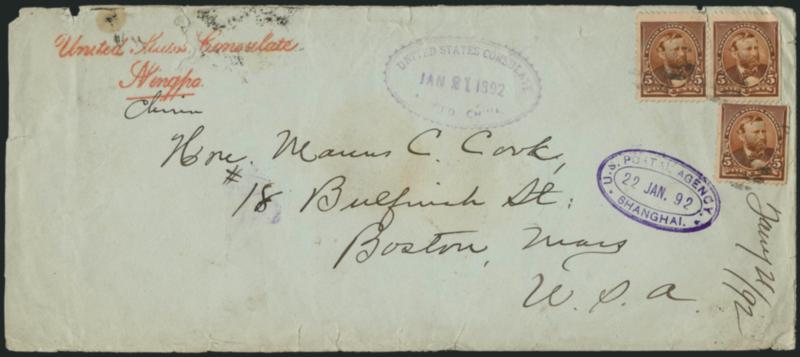 United States Consulate
Ningpo.
China
UNITED STATES CONSULATE
JAN 21 1892
CHINA
5 5
5 5
5 5
U.S. POSTAL AGENCY
22 JAN. 92
SHANGHAI.
Hon. Marcus C. Cook,
# 18 Bulfinch St:
Boston, Mass
U.S.A.
Jany 21/92